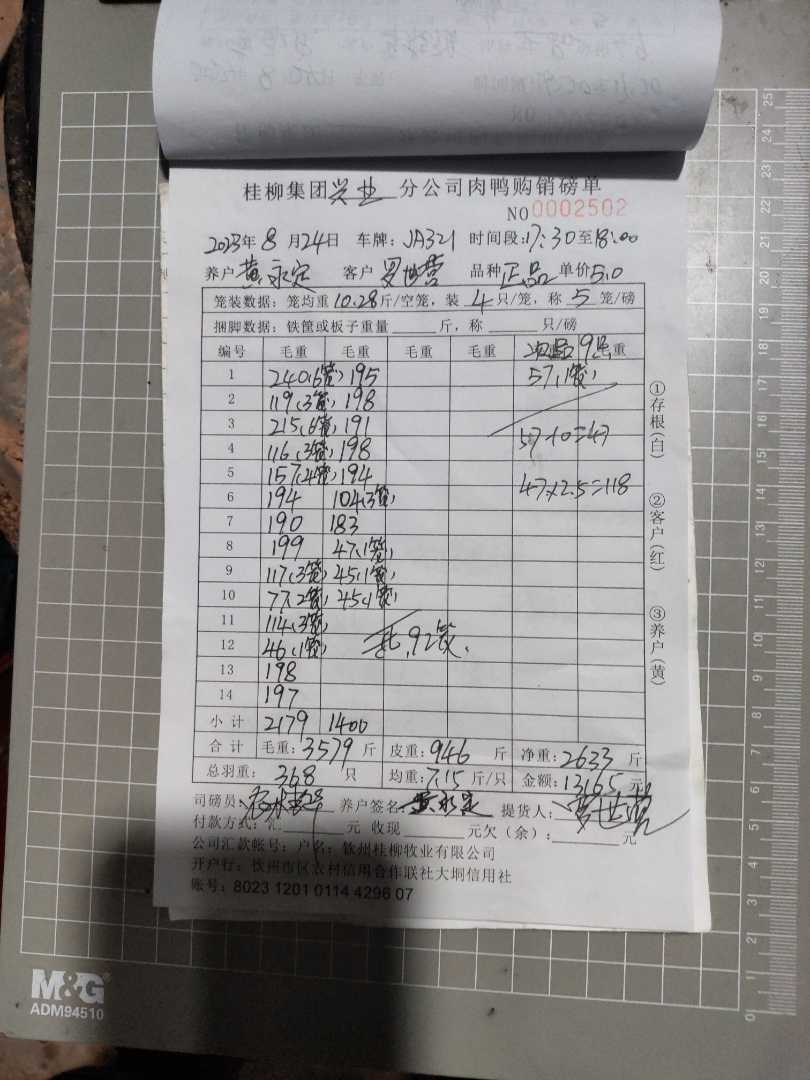 桂柳集团兴业分公司肉鸭购销磅单
NO 0002502
2023年8月24日 车牌：JA321 时间段：17:30至18:00
养户 黄永定 客户 罗世营 品种 正品 单价 5.0
笼装数据：笼均重 10.28 斤/空笼，装 4 只/笼，称 5 笼/磅
捆脚数据：铁筐或板子重量 斤，称 只/磅
编号 毛重 毛重 毛重 毛重 次品 9只 重
1 240(6笼) 195 57(1笼)
2 119(3笼) 198
3 215(6笼) 191 57-10=47
4 116(3笼) 198
5 157(4笼) 194 47×2.5=118
6 194 104(3笼)
7 190 183
8 199 47(1笼)
9 117(3笼) 45(1笼)
10 77(2笼) 45(1笼)
11 114(3笼)
12 46(1笼) 共92笼
13 198
14 197
小计 2179 1400
合计 毛重：3579 斤 皮重：946 斤 净重：2633 斤
总羽重：368 只 均重：7.15 斤/只 金额：13165 元
司磅员： 养户签名：黄永定 提货人：罗世营
付款方式：汇 元 收现 元欠（余）： 元
公司汇款帐号：户名：钦州桂柳牧业有限公司
开户行：钦州市区农村信用合作联社大垌信用社
账号：8023 1201 0114 4296 07
①存根（白）
②客户（红）
③养户（黄
M&G
ADM94510
0 1 2 3 4 5 6 7 8 9 10 11 12 13 14 15 16 17 18 19 20 21 22 23 24 25